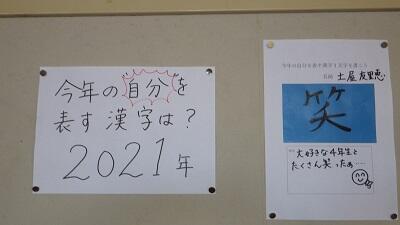 今年の自分を
表す漢字は？
2021年
今年の自分を表す漢字1文字を書こう
名前 土屋友里恵
笑
大好きな4年生と
たくさん笑ったぁ……